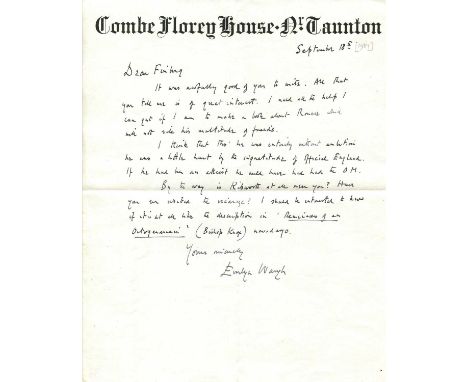 Combe Florey House · Nr Taunton
September 18th [1957]
Dear Fielding
It was awfully good of you to write. All that
you tell me is of great interest. I need all the help I
can get if I am to make a book about Ronnie which
will not vex his multitude of friends.
I think that tho' he was entirely without ambition
he was a little hurt by the ingratitude of Official England.
If he had been an atheist he would have had the O.M.
By the way is Kibworth at all near you? Have
you ever visited the vicarage? I should be interested to know
if it is at all like the description in 'Reminiscences of an
Octogenarian' (Bishop Knox) nowadays.
Yours sincerely
Evelyn Waugh